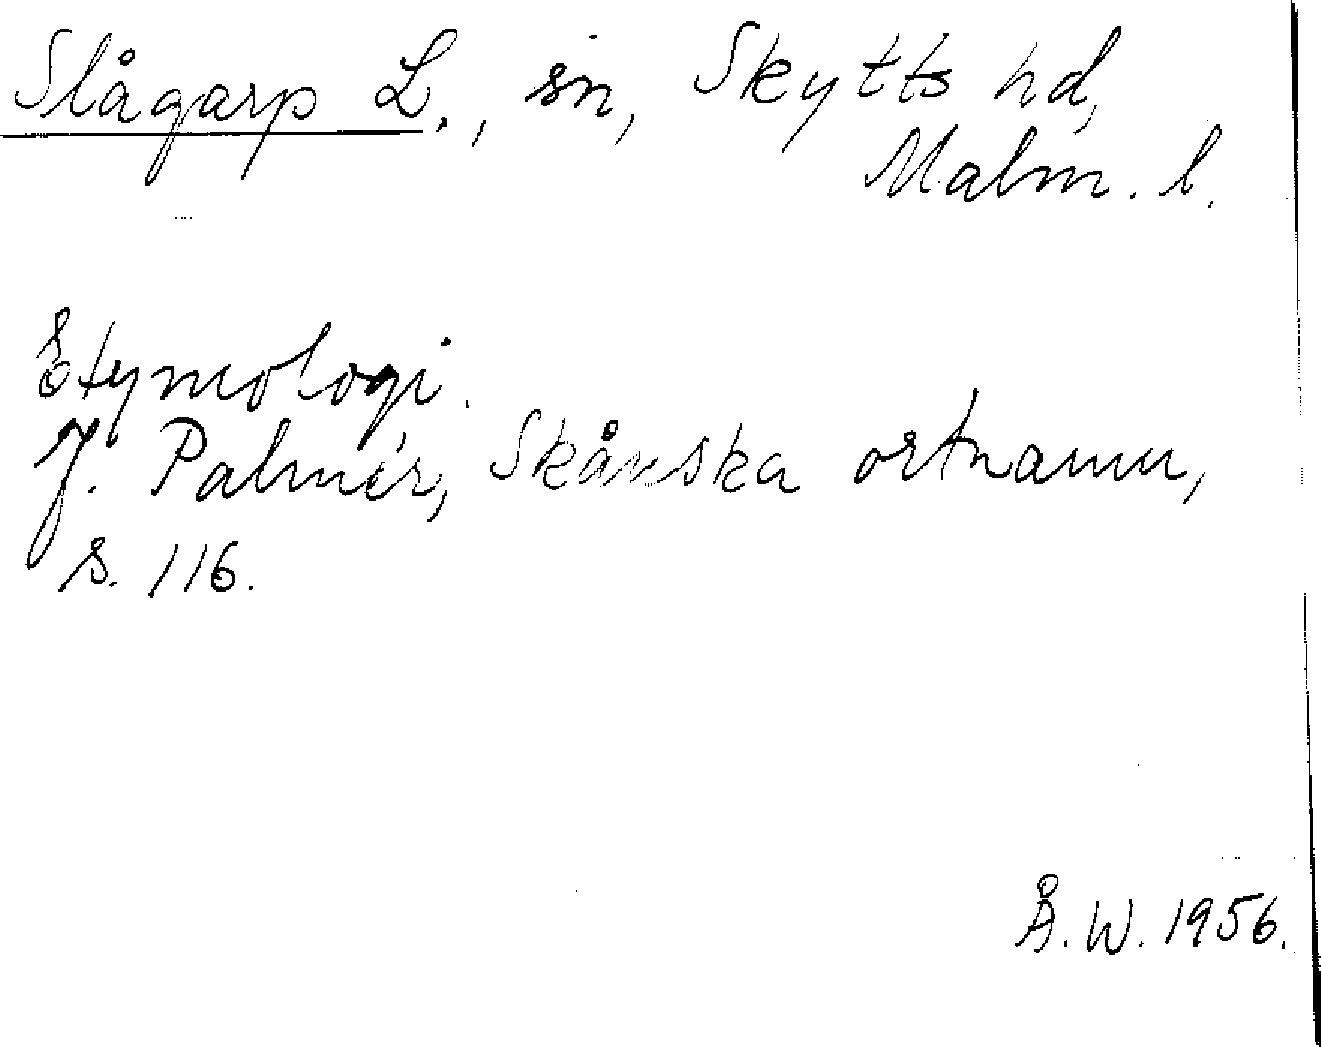 Slågarp L., sn, Skytts hd,
Malm. l.
Etymologi.
J. Palmér, Skånska ortnamn,
s. 116.
Å. W. 1956.